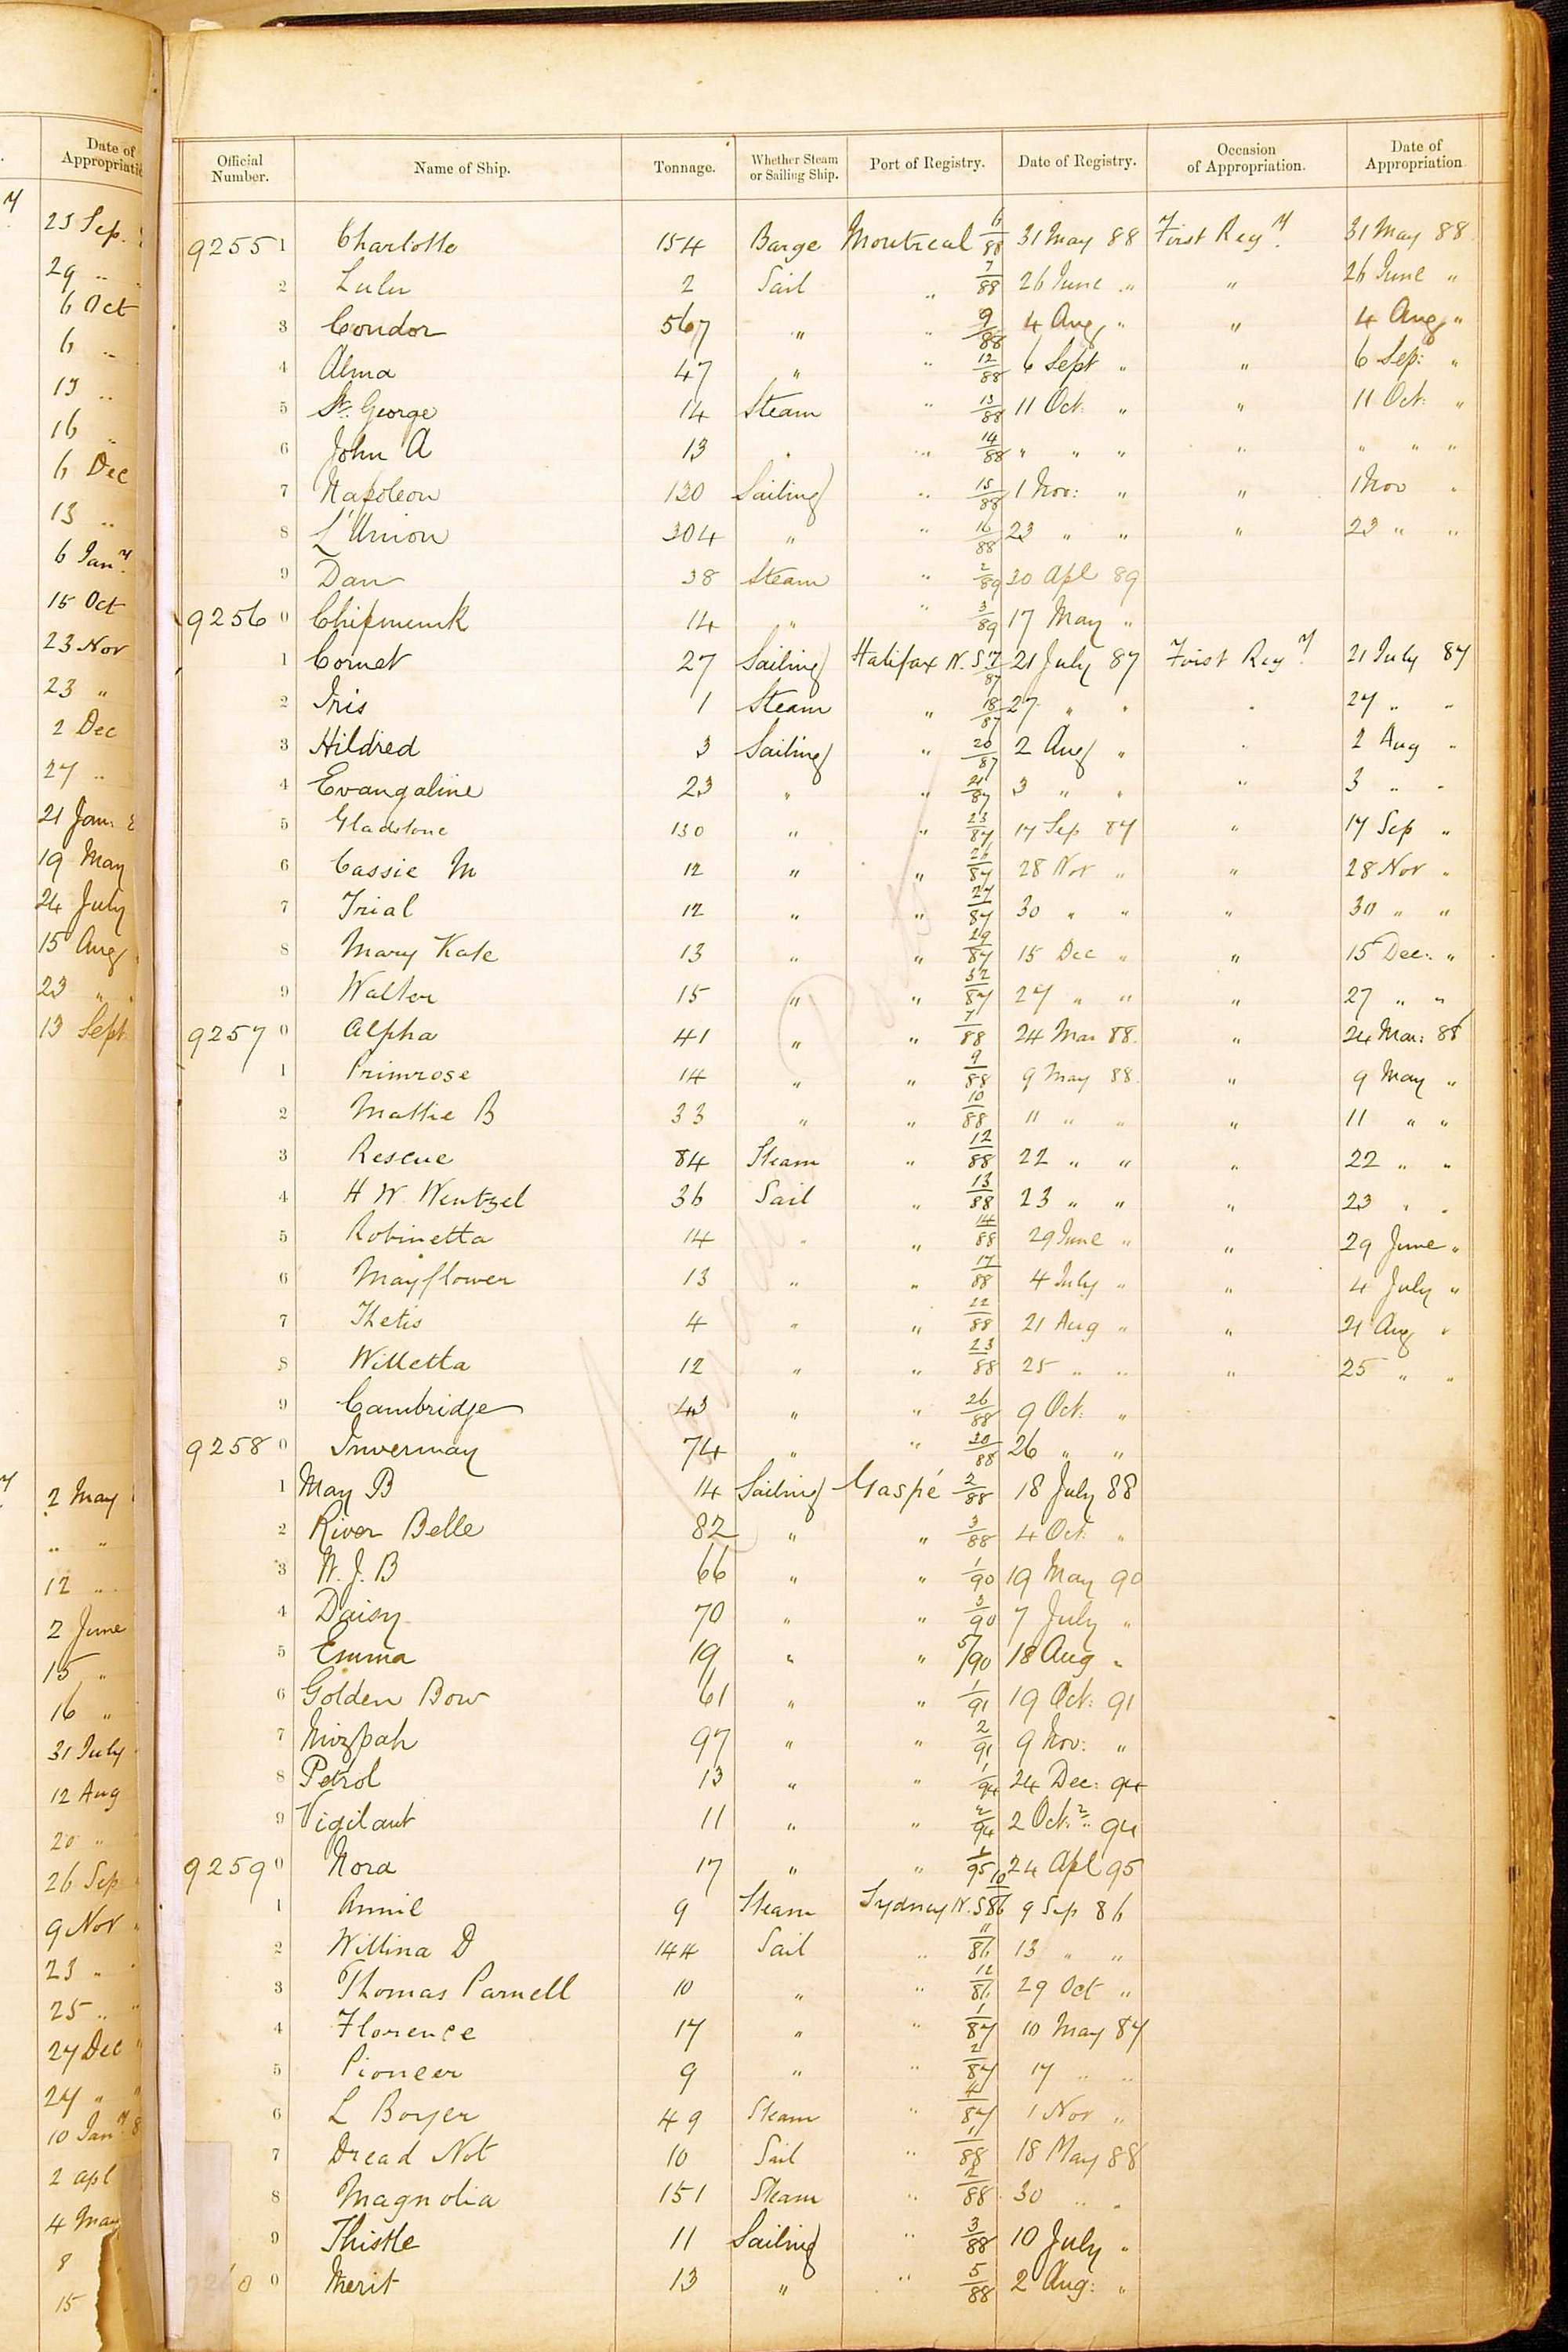 Date of Appropriati
23 Sep.
29 "
6 Oct
6 "
13 "
16 "
6 Dec
13 "
6 Jany.
15 Oct
23 Nov
23 "
2 Dec
27 "
21 Jan:
19 May
24 July
15 Aug
23 "
13 Sept
2 May
" "
12 "
2 June
15 "
16 "
31 July
12 Aug
20 "
26 Sep
9 Nov
23 "
25 "
27 Dec
27 "
10 Jany 8
2 apl
4 May
8
15
Official Number. Name of Ship. Tonnage. Whether Steam or Sailing Ship. Port of Registry. Date of Registry. Occasion of Appropriation. Date of Appropriation
9255 1 Charlotte 154 Barge Montreal 6/88 31 May 88 First Regy. 31 May 88
2 Lulu 2 Sail " 7/88 26 June " " 26 June "
3 Condor 567 " " 9/88 4 Aug " " 4 Aug "
4 Alma 47 " " 12/88 6 Sept " " 6 Sep: "
5 St. George 14 Steam " 13/88 11 Oct: " " 11 Oct: "
6 John A 13 " " 14/88 " " " " " " "
7 Napoleon 130 Sailing " 15/88 1 Nov: " " 1 Nov "
8 L'Union 304 " " 16/88 23 " " " 23 " "
9 Dan 38 Steam " 2/89 30 Apl 89
9256 0 Chipmunk 14 " " 3/89 17 May "
1 Comet 27 Sailing Halifax N.S. 17/87 21 July 87 First Regy. 21 July 87
2 Iris 1 Steam " 18/87 27 " " " 27 " "
3 Hildred 3 Sailing " 20/87 2 Aug " " 2 Aug "
4 Evangaline 23 " " 21/87 3 " " " 3 " "
5 Gladstone 130 " " 23/87 17 Sep 87 " 17 Sep "
6 Cassie M 12 " " 26/87 28 Nov " " 28 Nov "
7 Trial 12 " " 27/87 30 " " " 30 " "
8 Mary Kate 13 " " 29/87 15 Dec " " 15 Dec: "
9 Walter 15 " " 32/87 27 " " " 27 " "
9257 0 Alpha 41 " " 7/88 24 Mar 88. " 24 Mar: 88
1 Primrose 14 " " 9/88 9 May 88. " 9 May "
2 Mattie B 33 " " 10/88 11 " " " 11 " "
3 Rescue 84 Steam " 12/88 22 " " " 22 " "
4 H W Wentzel 36 Sail " 13/88 23 " " " 23 " "
5 Robinetta 14 " " 14/88 29 June " " 29 June "
6 Mayflower 13 " " 17/88 4 July " " 4 July "
7 Thetis 4 " " 22/88 21 Aug " " 21 Aug "
8 Willetta 12 " " 23/88 25 " " " 25 " "
9 Cambridge 43 " " 26/88 9 Oct: "
9258 0 Invermay 74 " " 30/88 26 " "
1 May B 14 Sailing Gaspé 2/88 18 July 88
2 River Belle 82 " " 3/88 4 Oct: "
3 W. J. B 66 " " 1/90 19 May 90
4 Daisy 70 " " 3/90 7 July "
5 Emma 19 " " 5/90 18 Aug "
6 Golden Bow 61 " " 1/91 19 Oct: 91
7 Mizpah 97 " " 2/91 9 Nov: "
8 Petrol 13 " " 1/94 24 Dec: 94
9 Vigilant 11 " " 2/94 2 Oct: 94
9259 0 Nora 17 " " 1/95 24 Apl 95
1 Annie 9 Steam Sydney N.S 10/86 9 Sep 86
2 Willina D 144 Sail " 11/86 13 " "
3 Thomas Parnell 10 " " 12/86 29 Oct "
4 Florence 17 " " 1/87 10 May 87
5 Pioneer 9 " " 2/87 17 " "
6 L Boyer 49 Steam " 4/87 1 Nov "
7 Dread Not 10 Sail " 1/88 18 May 88
8 Magnolia 151 Steam " 2/88 30 " "
9 Thistle 11 Sailing " 3/88 10 July "
9260 0 Merit 13 " " 5/88 2 Aug: "